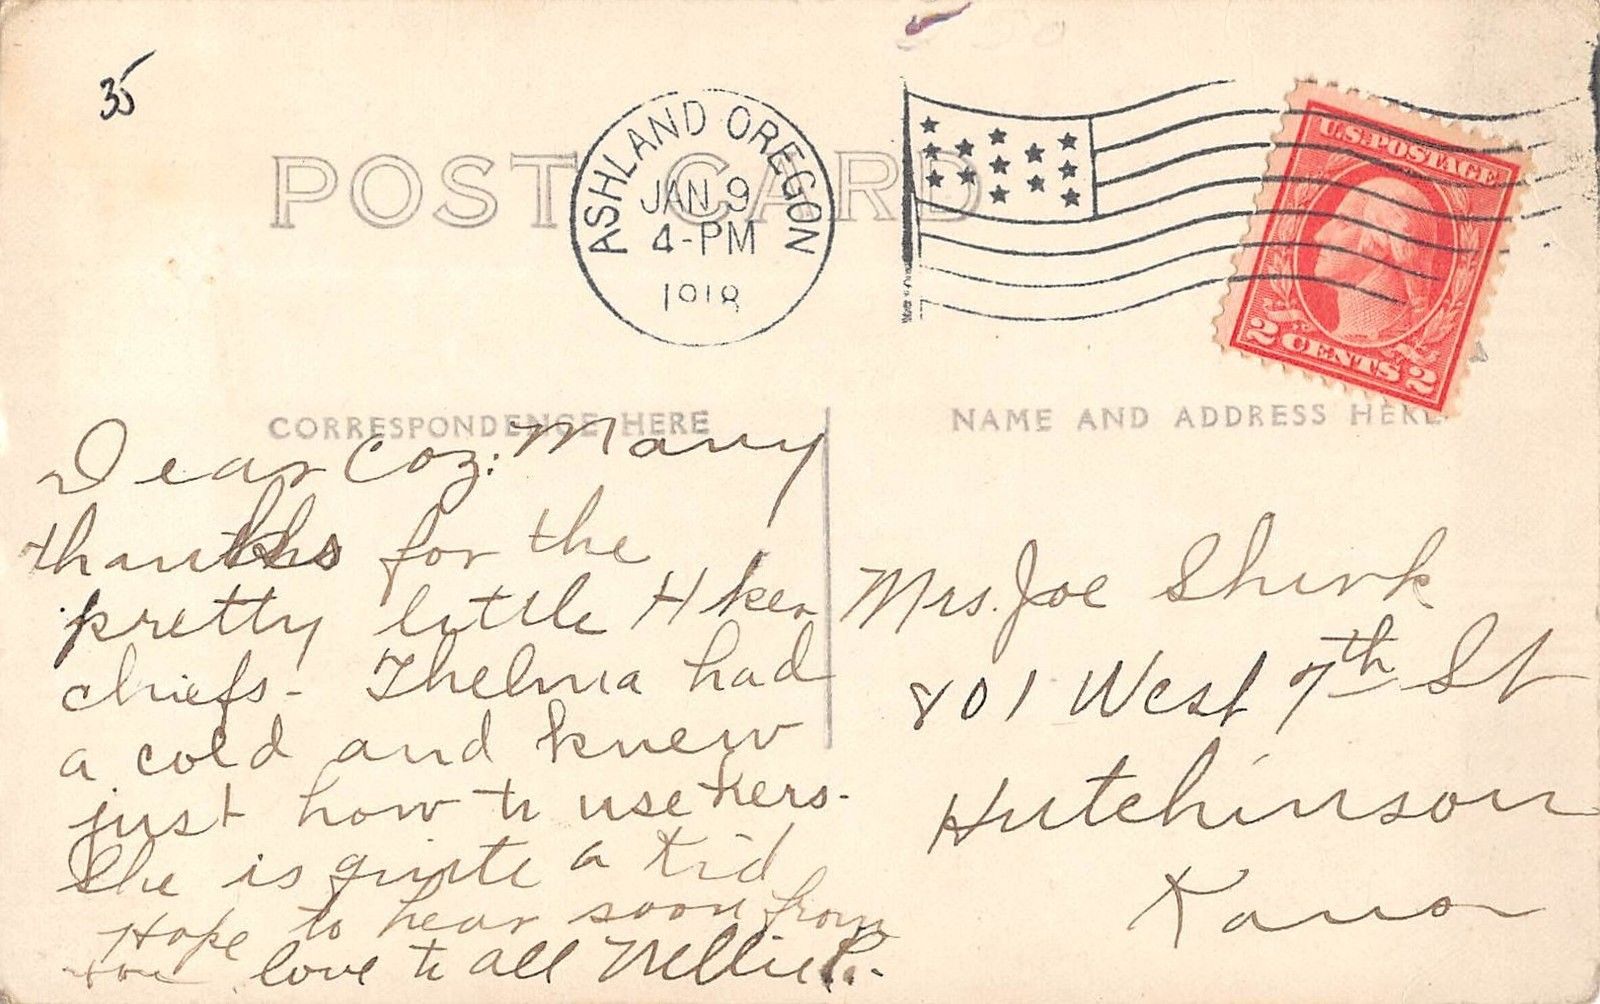 35
POST CARD
ASHLAND OREGON
JAN 9
4-PM
1918
U.S. POSTAGE
2 CENTS 2
CORRESPONDENCE HERE
NAME AND ADDRESS HERE
Dear Coz: Many
thanks for the
pretty little Hker
chiefs - Thelma had
a cold and knew
just how to use hers.
She is quite a kid
Hope to hear soon from
you love to all Nellie P.
Mrs. Joe Shirk
801 West 7th St
Hutchinson
Kans